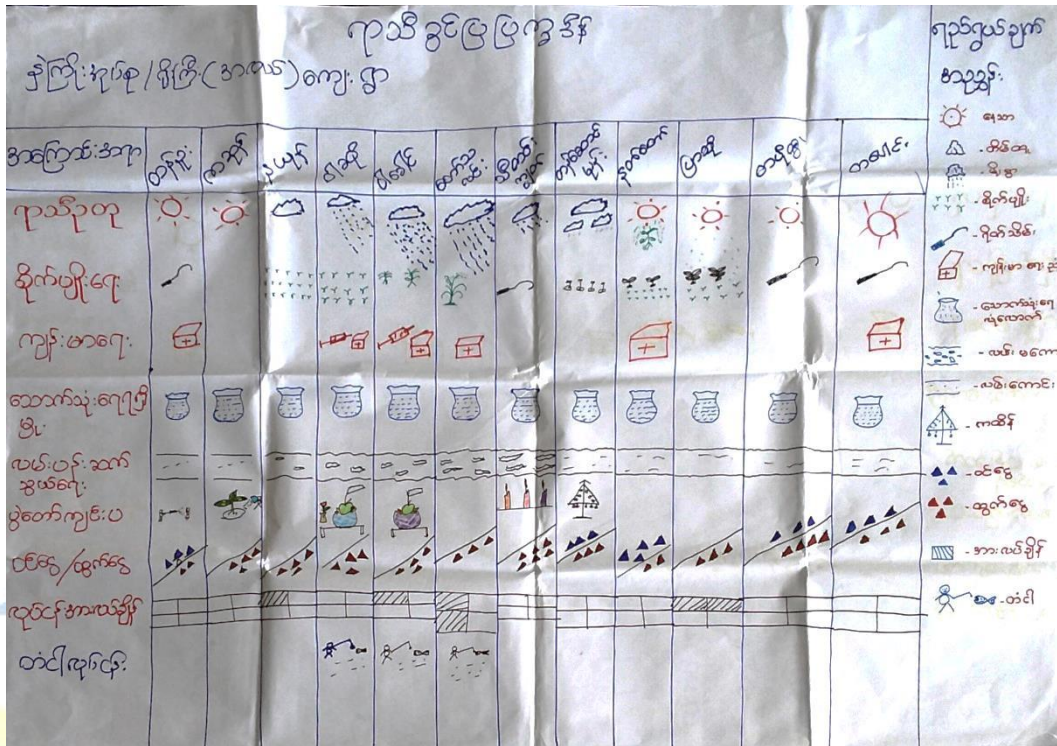 ရာသီခွင်ပြ ပြက္ခဒိန်
ကျေးရွာ
အကြောင်းအရာ
တန်ခူး
ကဆုန်
နယုန်
ဝါဆို
ဝါခေါင်
တော်သလင်း
သီတင်းကျွတ်
တန်ဆောင်မုန်း
နတ်တော်
ပြာသို
တပို့တွဲ
တပေါင်း
ရာသီဥတု
စိုက်ပျိုးရေး
ကျန်းမာရေး
သောက်သုံးရေရရှိမှု
လမ်းပန်းဆက်သွယ်ရေး
ပွဲတော်ကျင်းပ
ဝင်ငွေ/ထွက်ငွေ
လုပ်ငန်းအားလပ်ချိန်
တံငါလုပ်ငန်း
ရည်ရွယ်ချက်
နေသာ
တိမ်ထူ
မိုးရွာ
- စိုက်ပျိုး
- ရိတ်သိမ်း
- သောက်သုံးရေ
လုံလောက်
- လမ်းမကောင်း
- လမ်းကောင်း
- ကထိန်
- ဝင်ငွေ
- ထွက်ငွေ
- အားလပ်ချိန်
- တံငါ